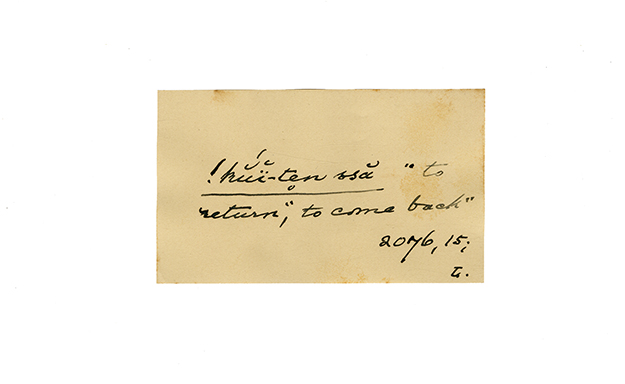 !kŭ́ï̆-ten̥ ssă " to
return", to come back"
2076, 15;
L.